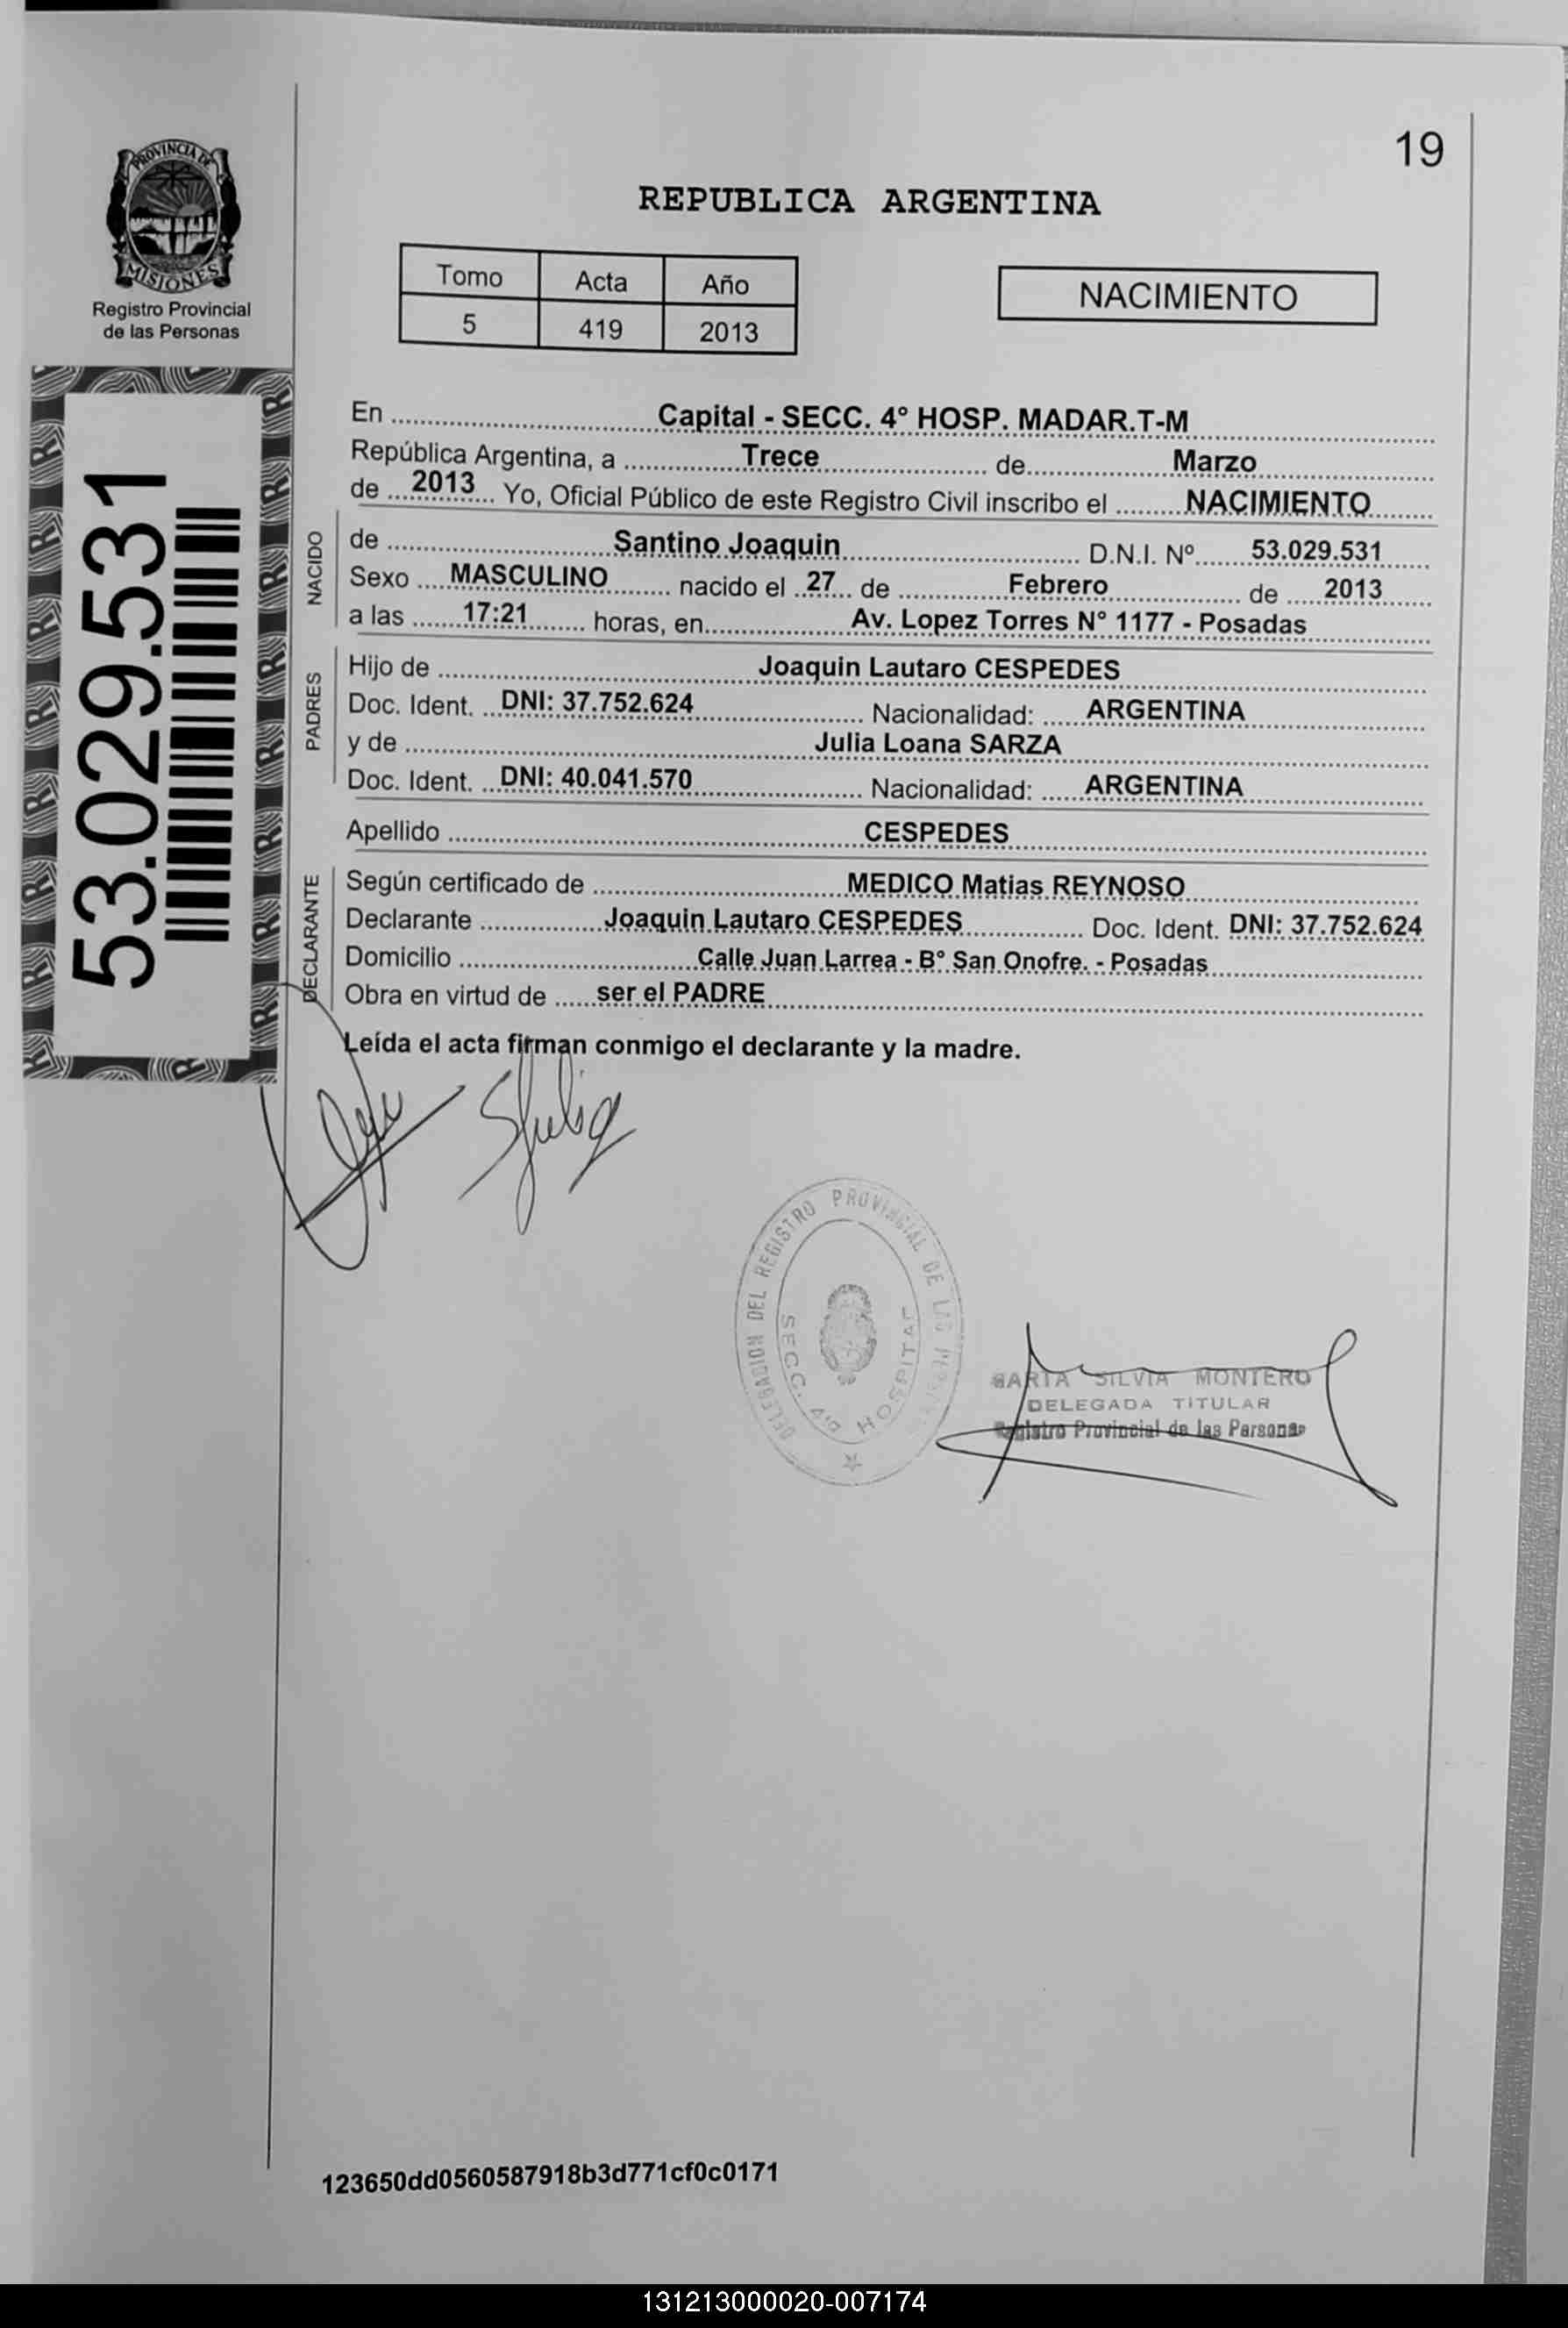 19
PROVINCIA DE
MISIONES
Registro Provincial
de las Personas
REPUBLICA ARGENTINA
Tomo Acta Año
5 419 2013
NACIMIENTO
53.029.531
En Capital - SECC. 4° HOSP. MADAR.T-M
República Argentina, a Trece de Marzo
de 2013 Yo, Oficial Público de este Registro Civil inscribo el NACIMIENTO
NACIDO
de Santino Joaquin D.N.I. Nº 53.029.531
Sexo MASCULINO nacido el 27 de Febrero de 2013
a las 17:21 horas, en Av. Lopez Torres N° 1177 - Posadas
PADRES
Hijo de Joaquin Lautaro CESPEDES
Doc. Ident. DNI: 37.752.624 Nacionalidad: ARGENTINA
y de Julia Loana SARZA
Doc. Ident. DNI: 40.041.570 Nacionalidad: ARGENTINA
Apellido CESPEDES
DECLARANTE
Según certificado de MEDICO Matias REYNOSO
Declarante Joaquin Lautaro CESPEDES Doc. Ident. DNI: 37.752.624
Domicilio Calle Juan Larrea - B° San Onofre. - Posadas
Obra en virtud de ser el PADRE
Leída el acta firman conmigo el declarante y la madre.
DELEGACION DEL REGISTRO PROVINCIAL DE LAS
SECC. 4ta HOSPITAL
SILVIA MONTERO
DELEGADA TITULAR
Registro Provincial de las Personas
123650dd0560587918b3d771cf0c0171
131213000020-007174